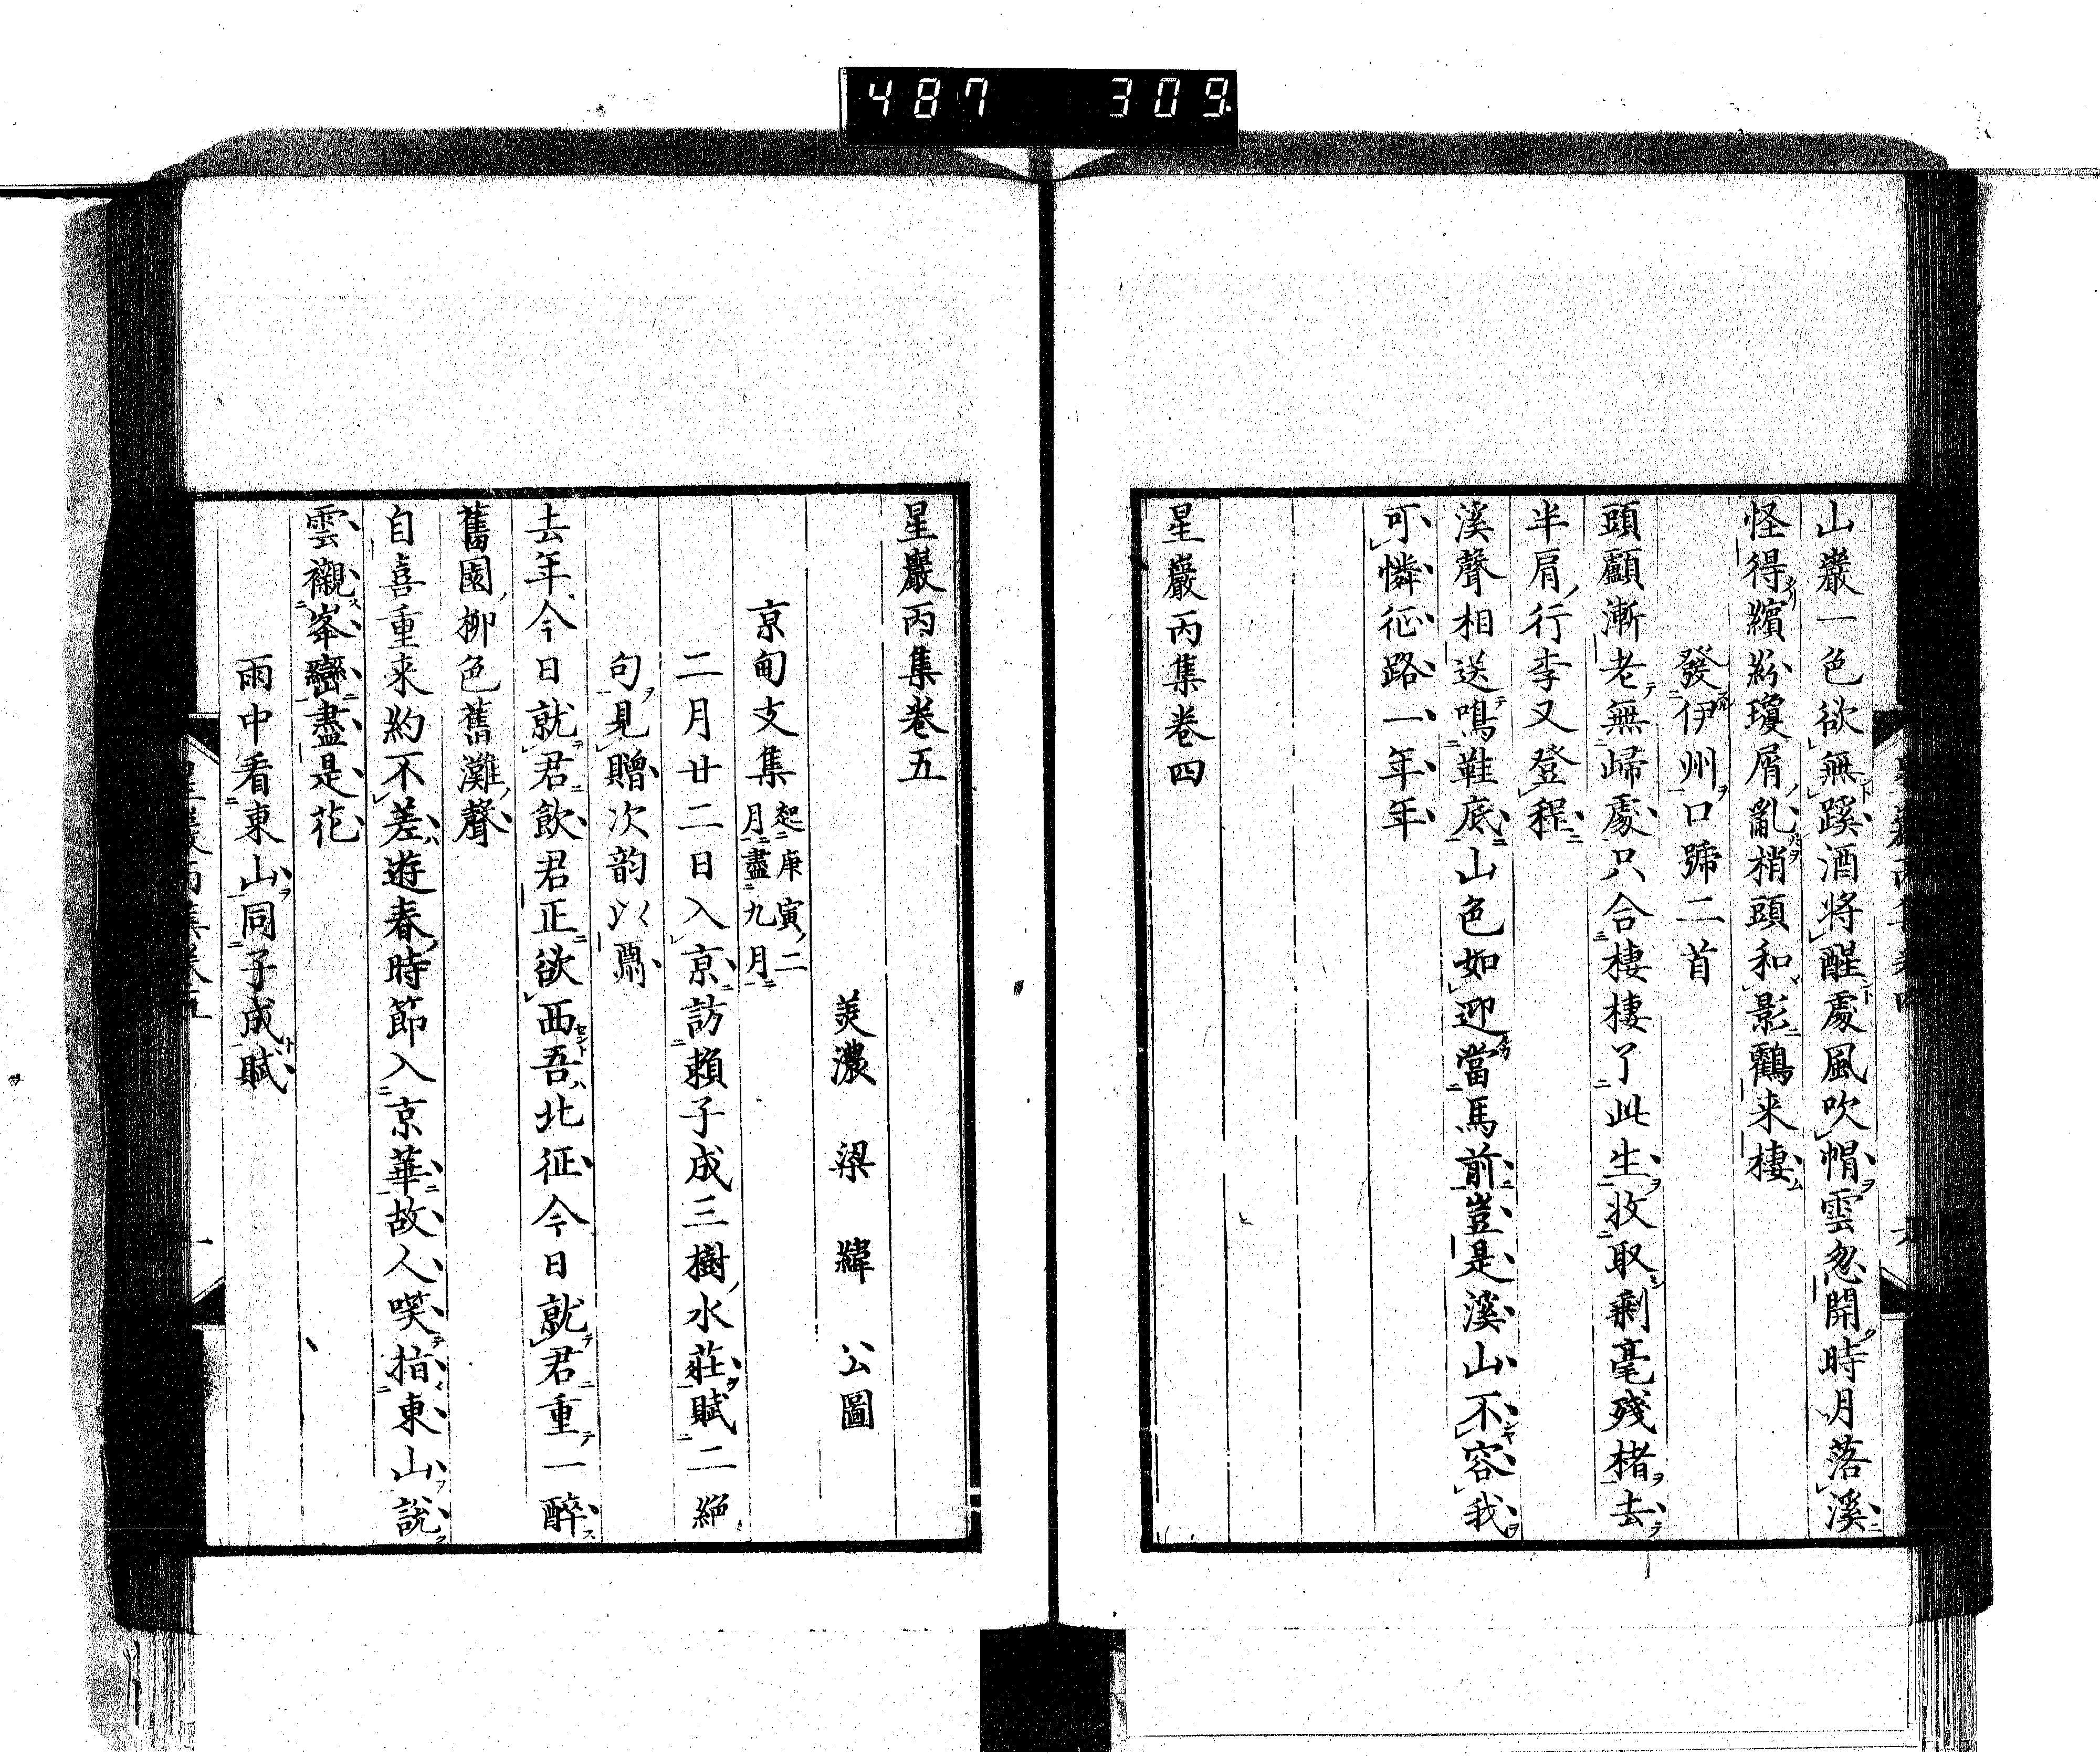 487 309
山巖一色欲無蹊酒將醒處風吹帽雲忽開時月落溪
怪得繽紛瓊屑亂梢頭和影鸖来棲
發伊州口號二首
頭顱漸老無歸處只合棲棲了此生收取剩毫殘楮去
半肩行李又登程
溪聲相送鳴鞋底山色如迎當馬前豈是溪山不容我
可憐征路一年年
星巖丙集卷四
星巖丙集卷五
美濃 梁 緯 公圖
京甸支集 起庚寅二
月盡九月
二月廿二日入京訪賴子成三樹水莊賦二絶
句見贈次韵以酬
去年今日就君飲君正欲西吾北征今日就君重一醉
舊園柳色舊灘聲
自喜重来約不差遊春時節入京華故人咲指東山說
雲襯峯巒盡是花
雨中看東山同子成賦